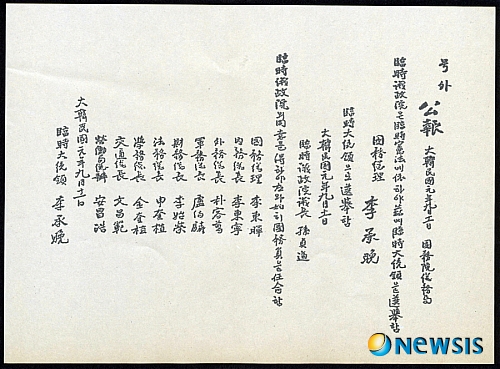 号外
公報 大韓民國元年九月十一日 國務院
臨時議政院은 臨時憲法에 依하야 玆에 臨時大統領을 選擧함
國務総理 李承晩
臨時大統領으로 選擧함
大韓民國元年九月十一日
臨時議政院議長 孫貞道
臨時議政院의 同意를 得하야 左와 如히 國務員을 任命함
國務総理 李東輝
内務総長 李東寧
外務総長 朴容萬
軍務総長 盧伯麟
財務総長 李始榮
法務総長 申奎植
學務総長 金奎植
交通総長 文昌範
勞働局総辦 安昌浩
大韓民國元年九月十一日
臨時大統領 李承晩
NEWSIS